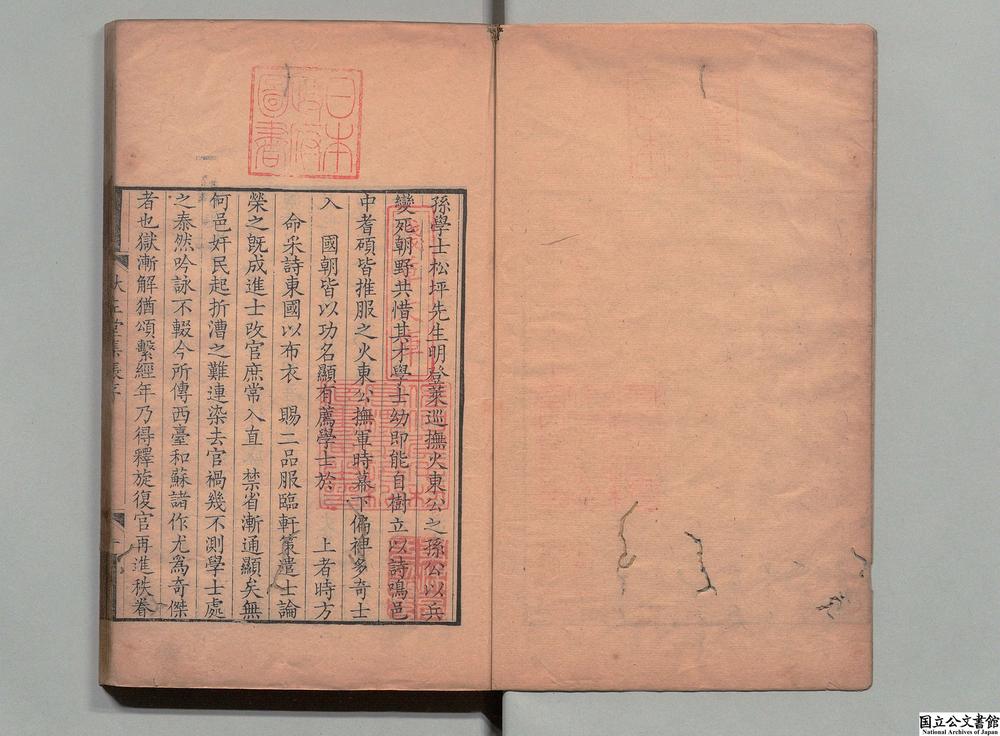 日本
政府
圖書
孫學士松坪先生明登萊巡撫火東公之孫公以兵
變死朝野共惜其才學士幼即能自樹立以詩鳴邑
中耆碩皆推服之火東公撫軍時幕下偏裨多奇士
入　國朝皆以功名顯有薦學士於　　上者時方
命采詩東國以布衣　賜二品服臨軒策遣士論
榮之既成進士改官庶常入直　禁省漸通顯矣無
何邑奸民起折漕之難連染去官禍幾不測學士處
之泰然吟詠不輟今所傳西臺和蘇諸作尤為奇傑
者也獄漸解猶頌繫經年乃得釋旋復官再進秩眷
國立公文書館
National Archives of Japan